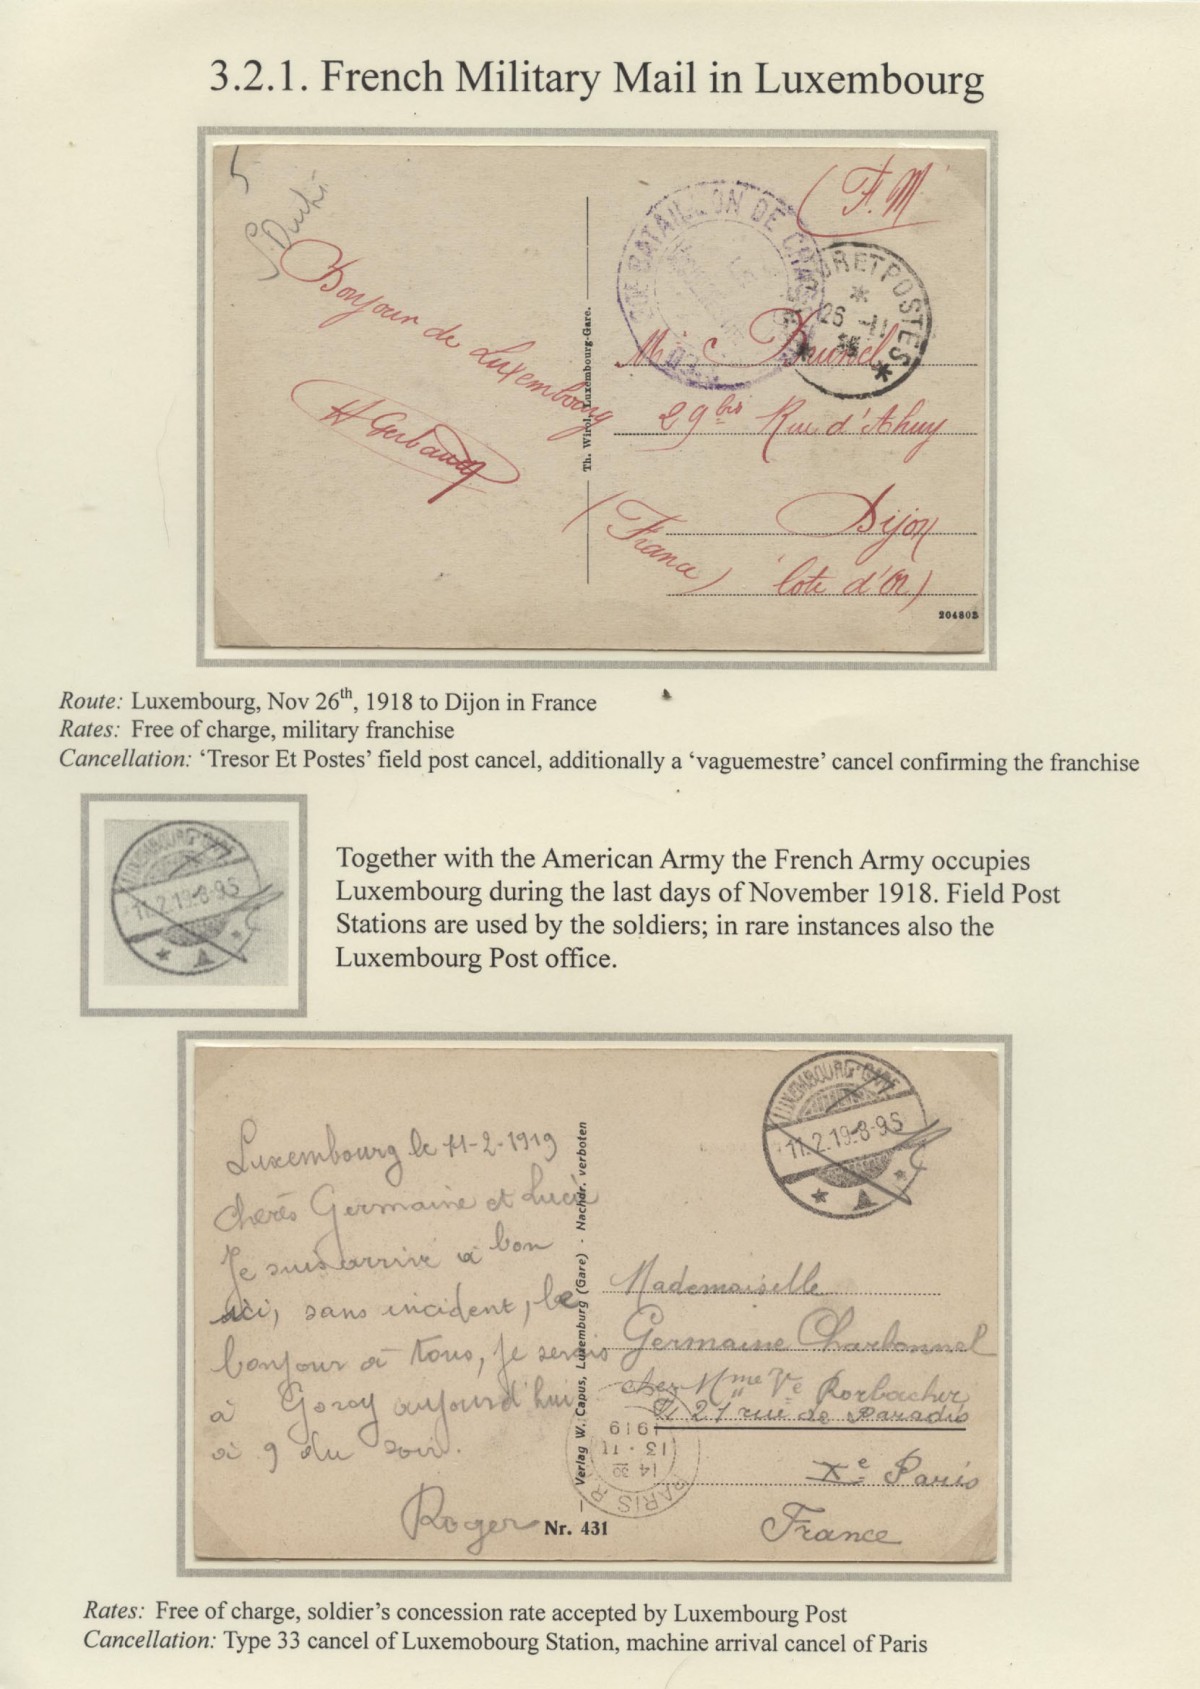 3.2.1. French Military Mail in Luxembourg
5
(F.M
BATAILLON DE
TRESOR ET POSTES
* 26 -11 *
Bonjour de Luxembourg
H Gerbaud
Th. Wirol, Luxembourg-Gare.
29 bis Rue d'Ahuy
Dijon
(France) Cote d'Or)
204802
Route: Luxembourg, Nov 26th, 1918 to Dijon in France
Rates: Free of charge, military franchise
Cancellation: ‘Tresor Et Postes’ field post cancel, additionally a ‘vaguemestre’ cancel confirming the franchise
LUXEMBOURG GARE
11.2.19.8-9S
Together with the American Army the French Army occupies
Luxembourg during the last days of November 1918. Field Post
Stations are used by the soldiers; in rare instances also the
Luxembourg Post office.
LUXEMBOURG GARE
11.2.19.8-9S
Luxembourg le 11-2-1919
Chères Germaine et Lucie
Je suis arrivé à bon
ici, sans incident, le
bonjour à tous, je serais
à Gorcy aujourd'hui
à 9 du soir.
Roger
Verlag W. Capus, Luxemburg (Gare) - Nachdr. verboten
Nr. 431
Mademoiselle
Germaine Charbonnel
chez Mme Ve Rorbacher
21 rue de Paradis
Xe Paris
France
PARIS R
14 30
13 · II
1919
Rates: Free of charge, soldier’s concession rate accepted by Luxembourg Post
Cancellation: Type 33 cancel of Luxemobourg Station, machine arrival cancel of Paris